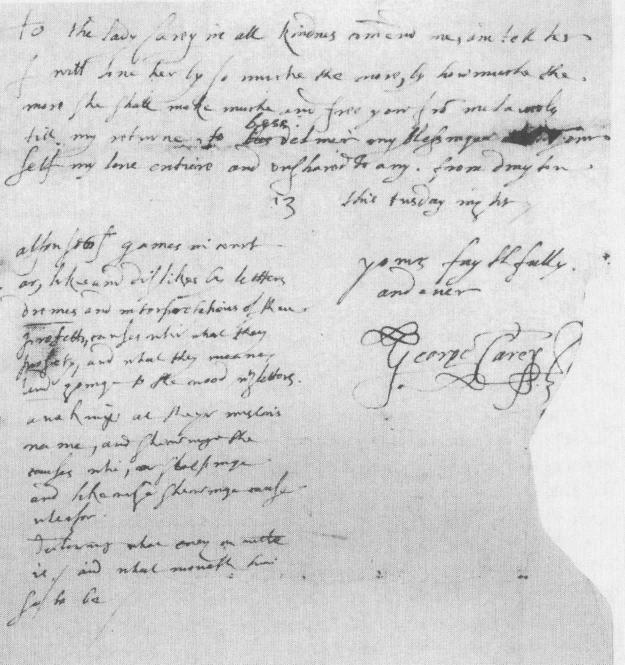 to the lady Carey in all kindnes comend me, and tell her
I will love her by so muche the more, by how muche the
more she shall make muche and free you frō
till my returne to bess: deliver my blessinge your
self my love entiere and unshared to any. from drayton
this tusday night
yours faythfully.
and ever
George Carey
also sort of games in court
as, likes and dislikes be letters
dremes and interpretations of them
profettes, causes whi what they
profety, and what they meane,
goinge to the wood letters.
a at theyr mistris
name, and shewinge the
causes whi, or
and likewise shewinge cause
wherfor.
what every on
it. / and what moveth him
so to be